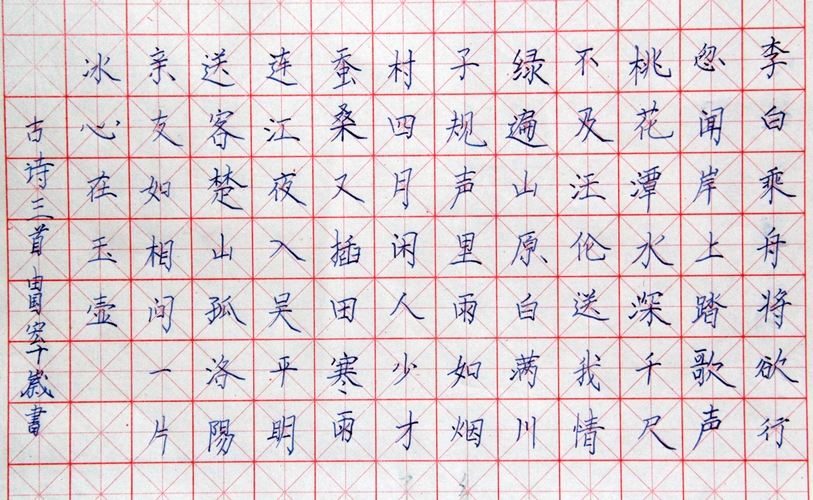 李白乘舟将欲行
忽闻岸上踏歌声
桃花潭水深千尺
不及汪伦送我情
绿遍山原白满川
子规声里雨如烟
村四月闲人少才
蚕桑又插田寒雨
连江夜入吴平明
送客楚山孤洛陽
亲友如相问一片
冰心在玉壶
古诗三首歲書